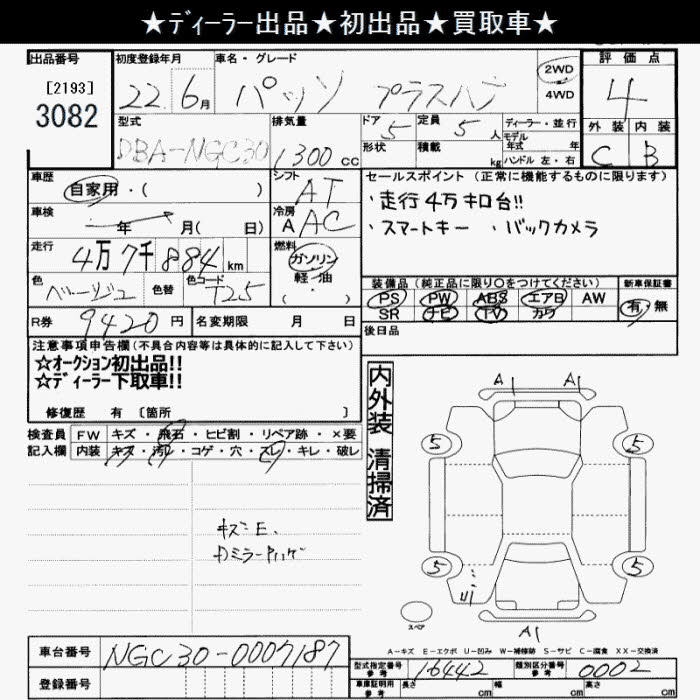 ★ディーラー出品★初出品★買取車★
出品番号 初度登録年月 車名・グレード 評価点
[2193]
3082
22年6月 パッソ プラスハナ 2WD 4WD 4
型式 排気量 ドア 定員 ディーラー・並行 外装 内装
DBA-NGC30 1300cc 5 5人 モデル年式 年式
形状 積載 kg ハンドル 左・右 C B
車歴 シフト セールスポイント (正常に機能するものに限ります)
自家用・( ) AT ・走行4万キロ台!!
車検 冷房 ・スマートキー ・バックカメラ
年 月( 日) A AC
走行 燃料
4万7千884km ガソリン
軽・油
( ・ )
色 色替 色コード 装備品 (純正品に限り○をつけてください) 新車保証書
ベージュ T25 PS PW ABS エアB AW 有・無
SR ナビ TV カワ
R券 9420円 名変期限 月 日 後日品
注意事項申告欄(不具合内容等は具体的に記入して下さい)
☆オークション初出品!!
☆ディーラー下取車!!
修復歴 有 [箇所 ]
内外装 清掃済
検査員 FW キズ・飛石・ヒビ割・リペア跡・×要
記入欄 内装 キズ・汚レ・コゲ・穴・スレ・キレ・破レ
A1 A1
5 5
5 5
キズ E、
Dミラー
スペア
A1
A-キズ E-エクボ U-凹み W-補修跡 S-サビ C-腐食 XX-交換済
車台番号 NGC30-0007187
型式指定番号 参考 16442 類別区分番号 参考 0002
登録番号
車庫証明用 参考 長さ cm 幅 cm 高さ cm